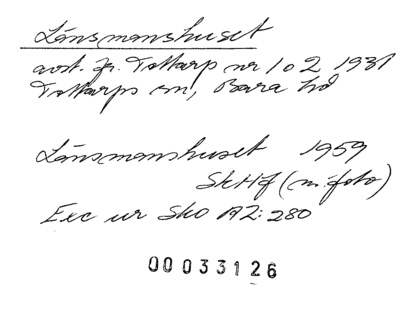 Länsmanshuset
avst. fr. Tottarp nr 1 o 2 1931
Tottarps sn, Bara hd
Länsmanshuset 1959
SkHf (m. foto)
Exc ur Sko AZ: 280
00033126